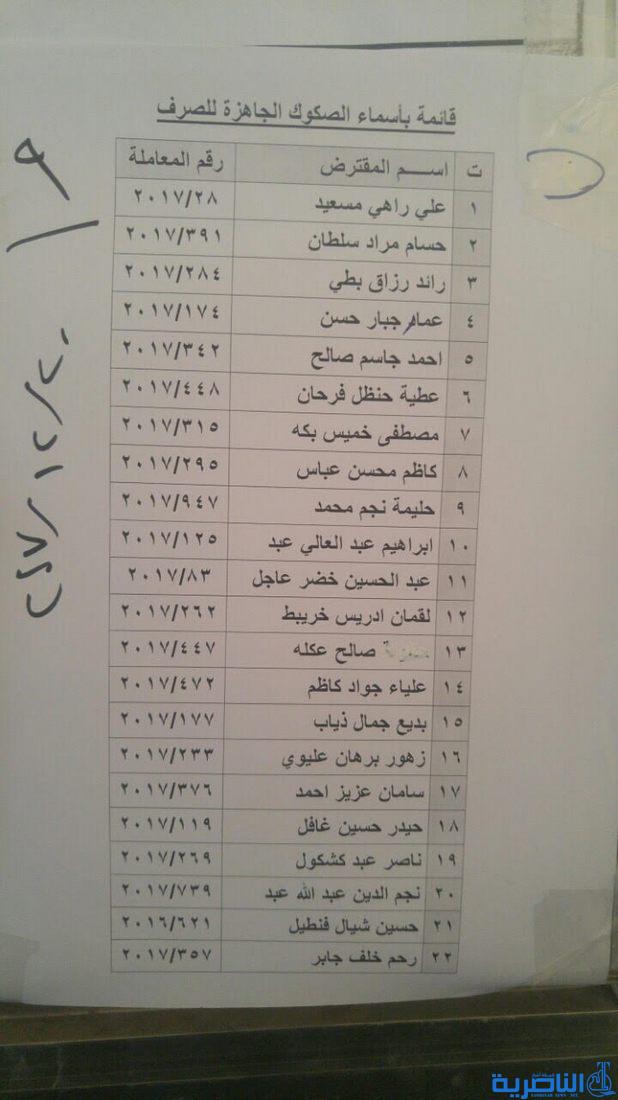 قائمة بأسماء الصكوك الجاهزة للصرف
ت اســم المقترض رقم المعاملة
١ علي راهي مسعيد ٢٠١٧/٢٨
٢ حسام مراد سلطان ٢٠١٧/٣٩١
٣ رائد رزاق بطي ٢٠١٧/٢٨٤
٤ عمار جبار حسن ٢٠١٧/١٧٤
٥ احمد جاسم صالح ٢٠١٧/٣٤٢
٦ عطية حنظل فرحان ٢٠١٧/٤٤٨
٧ مصطفى خميس بكه ٢٠١٧/٣١٥
٨ كاظم محسن عباس ٢٠١٧/٢٩٥
٩ حليمة نجم محمد ٢٠١٧/٩٤٧
١٠ ابراهيم عبد العالي عبد ٢٠١٧/١٢٥
١١ عبد الحسين خضر عاجل ٢٠١٧/٨٣
١٢ لقمان ادريس خريبط ٢٠١٧/٢٦٢
١٣ صالح عكله ٢٠١٧/٤٤٧
١٤ علياء جواد كاظم ٢٠١٧/٤٧٢
١٥ بديع جمال ذياب ٢٠١٧/١٧٧
١٦ زهور برهان عليوي ٢٠١٧/٢٣٣
١٧ سامان عزيز احمد ٢٠١٧/٣٧٦
١٨ حيدر حسين غافل ٢٠١٧/١١٩
١٩ ناصر عبد كشكول ٢٠١٧/٢٦٩
٢٠ نجم الدين عبد الله عبد ٢٠١٧/٧٣٩
٢١ حسين شيال فنطيل ٢٠١٦/٦٢١
٢٢ رحم خلف جابر ٢٠١٧/٣٥٧
الناصرية